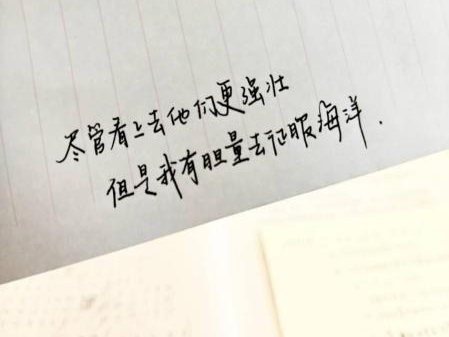 尽管看上去他们更强壮
但是我有胆量去征服海洋.